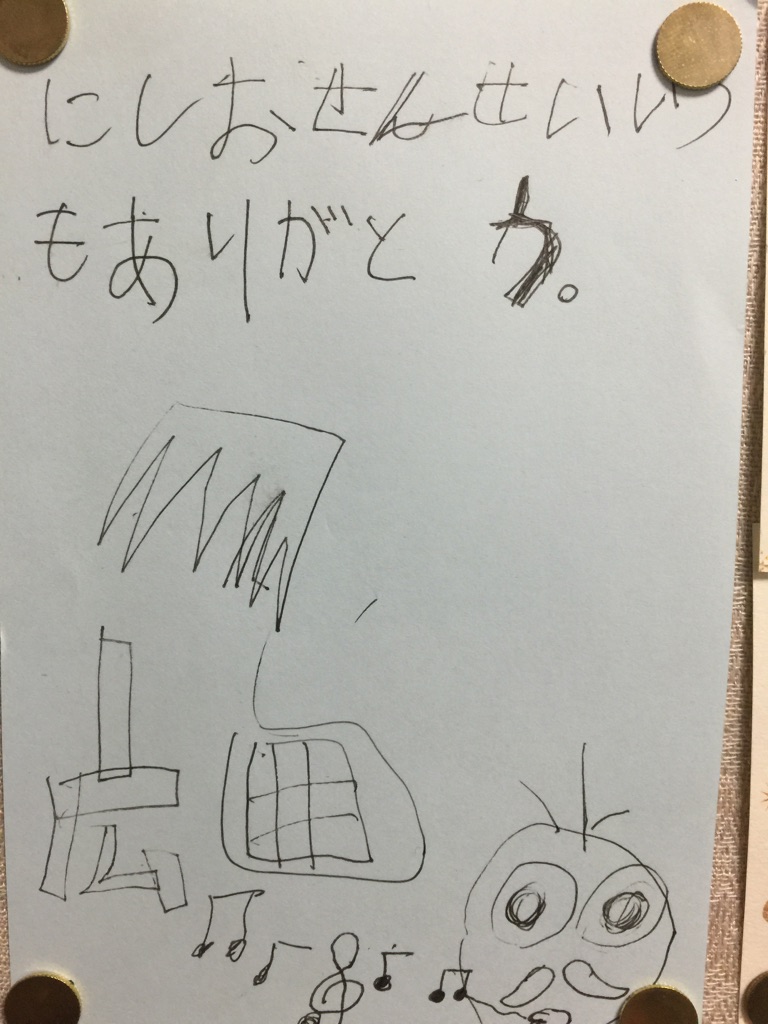 にしおせんせいいつ
もありがとう。
広